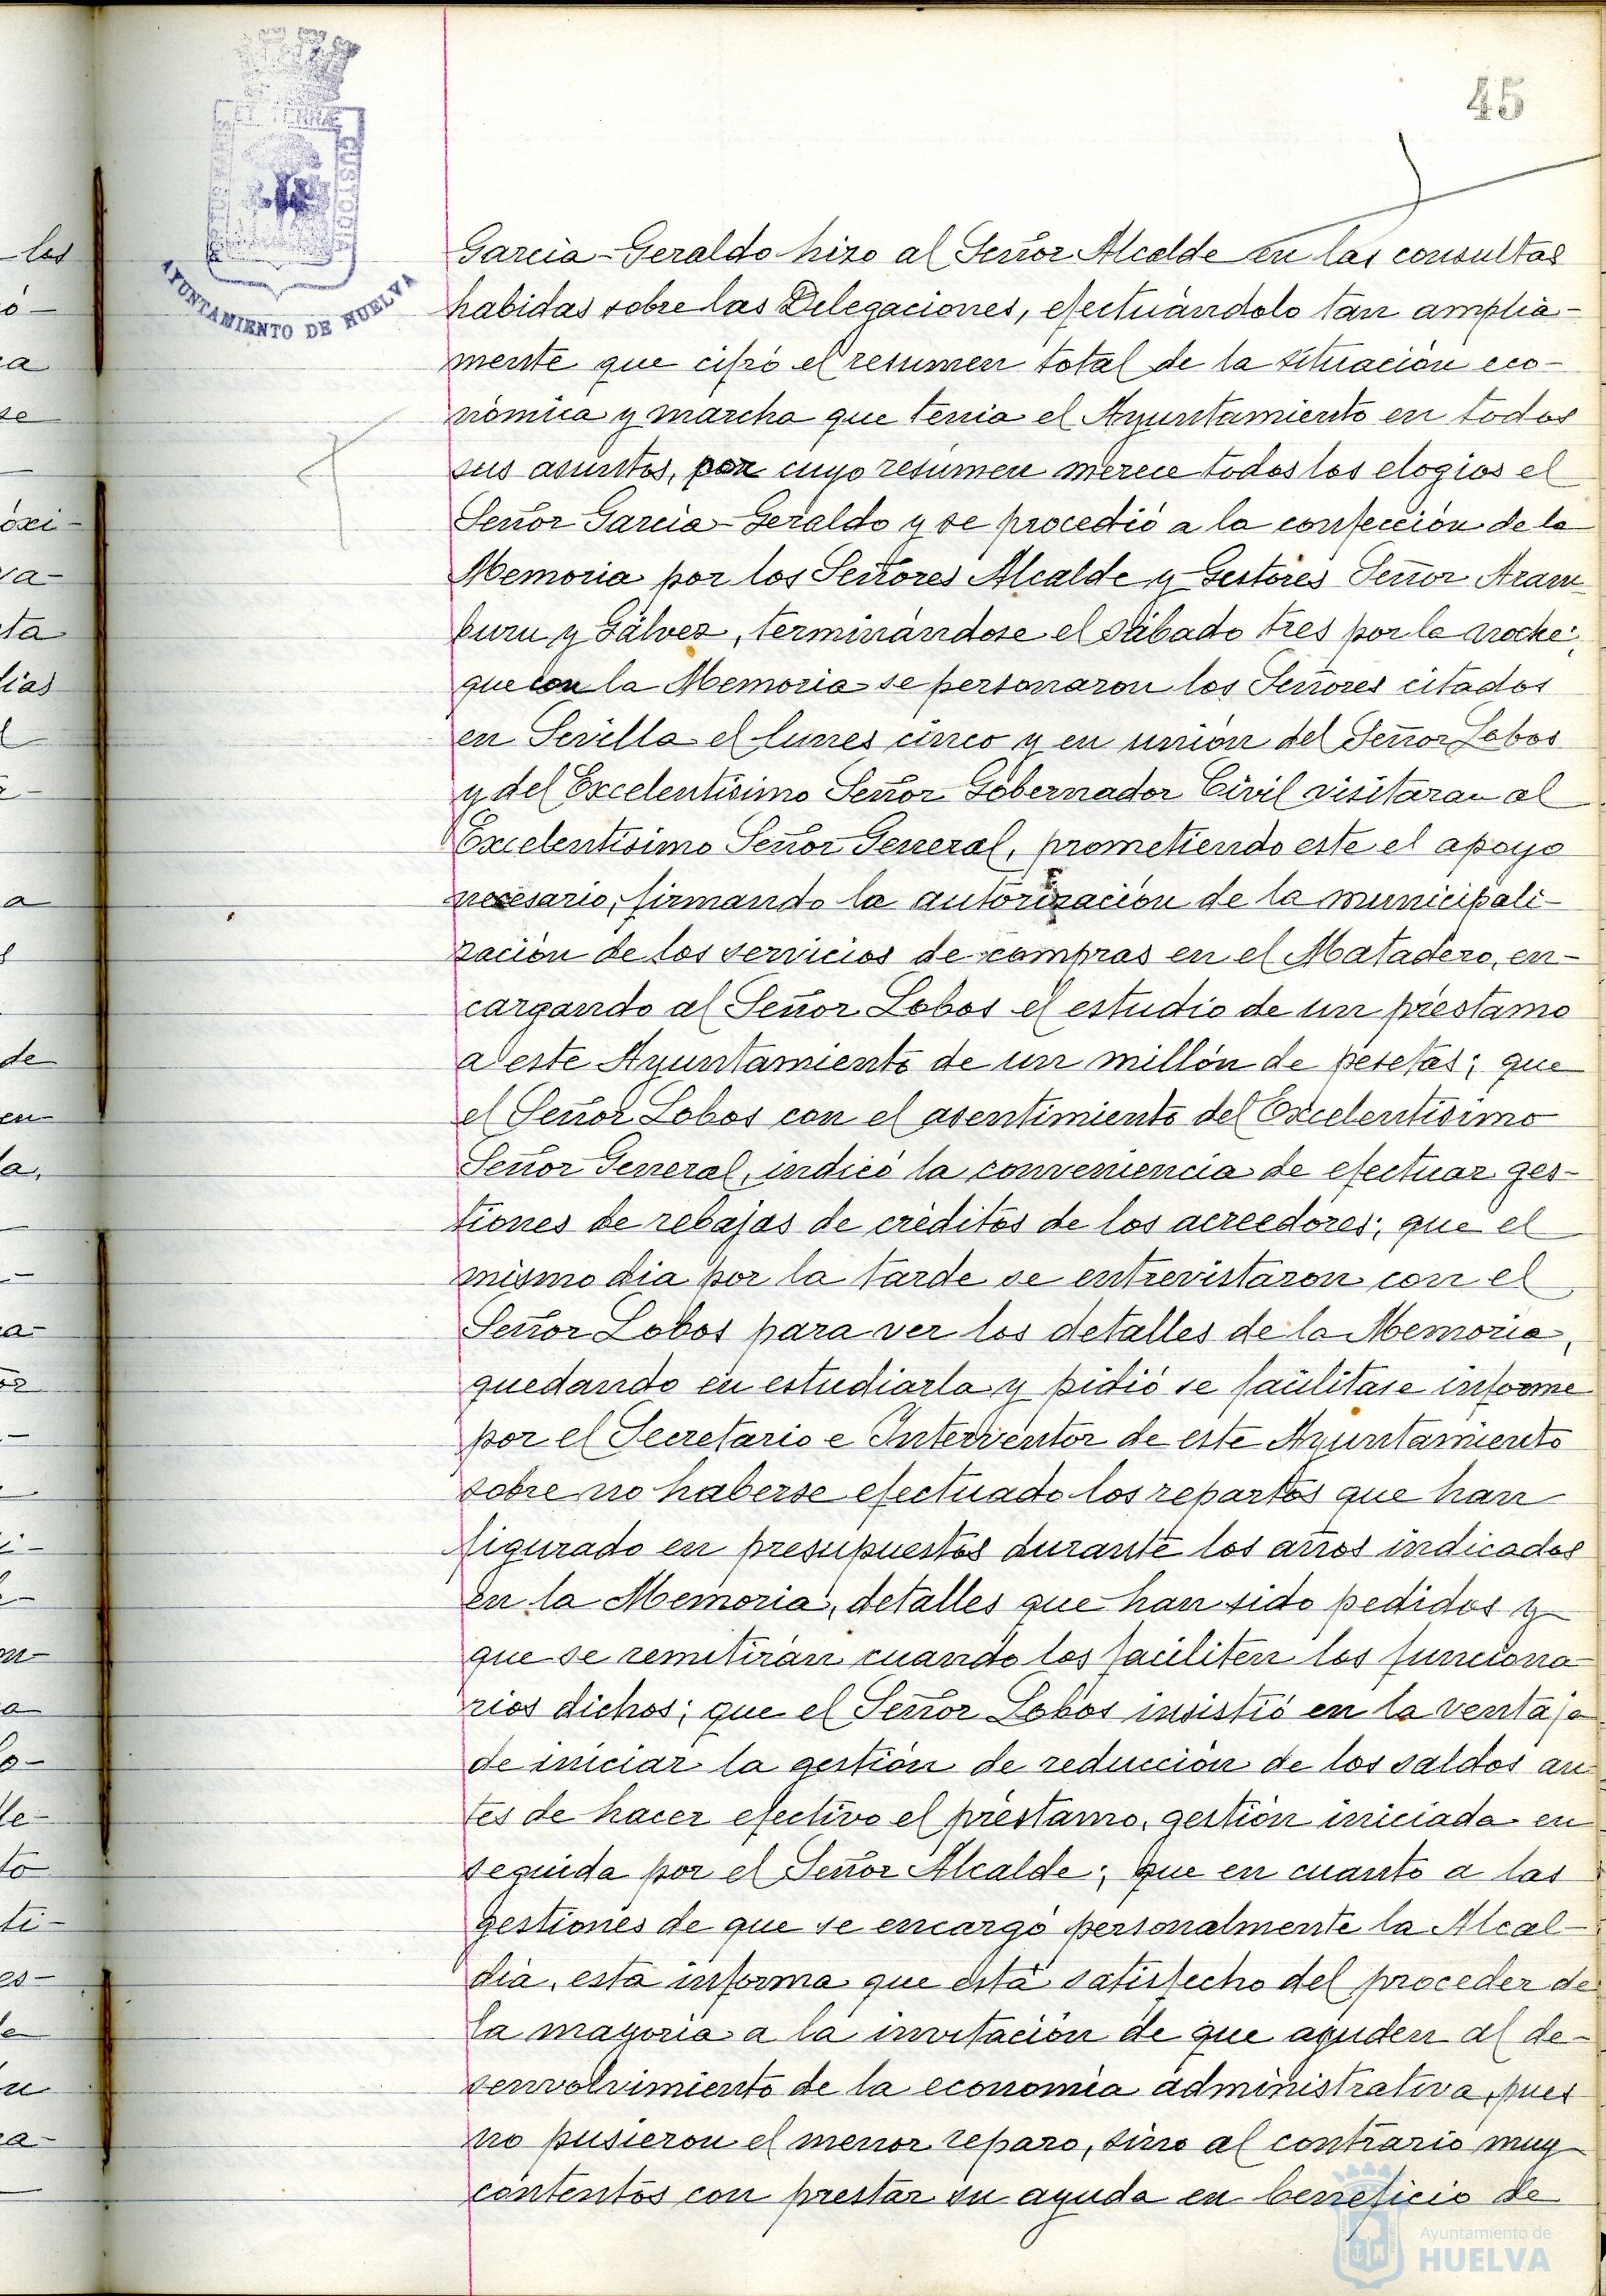 45
PORTUS MARIS
ET TERRAE
CUSTODIA
AYUNTAMIENTO DE HUELVA
Garcia-Geraldo hizo al Señor Alcalde en las consultas
habidas sobre las Delegaciones, efectuándolo tan amplia-
mente que cifró el resumen total de la situación eco-
nómica y marcha que tenia el Ayuntamiento en todos
sus asuntos, por cuyo resúmen merece todos los elogios el
Señor Garcia-Geraldo y se procedió a la confección de la
Memoria por los Señores Alcalde y Gestores Señor Aram-
buru y Gálvez, terminándose el sábado tres por la noche;
que con la Memoria se personaron los Señores citados
en Sevilla el lunes cinco y en unión del Señor Lobos
y del Excelentísimo Señor Gobernador Civil visitaran al
Excelentísimo Señor General, prometiendo este el apoyo
necesario, firmando la autorización de la municipali-
zación de los servicios de compras en el Matadero, en-
cargando al Señor Lobos el estudio de un préstamo
a este Ayuntamiento de un millón de pesetas; que
el Señor Lobos con el asentimiento del Excelentísimo
Señor General, indicó la conveniencia de efectuar ges-
tiones de rebajas de créditos de los acreedores; que el
mismo dia por la tarde se entrevistaron con el
Señor Lobos para ver los detalles de la Memoria,
quedando en estudiarla y pidió se facilitase informe
por el Secretario e Interventor de este Ayuntamiento
sobre no haberse efectuado los repartos que han
figurado en presupuestos durante los años indicados
en la Memoria, detalles que han sido pedidos y
que se remitirán cuando los faciliten los funciona
rios dichos; que el Señor Lobos insistió en la ventaja
de iniciar la gestión de reducción de los saldos an
tes de hacer efectivo el préstamo, gestión iniciada en
seguida por el Señor Alcalde; que en cuanto a las
gestiones de que se encargó personalmente la Alcal-
dia, esta informa que está satisfecho del proceder de
la mayoria a la invitación de que ayuden al de-
senvolvimiento de la economía administrativa, pues
no pusieron el menor reparo, sino al contrario muy
contentos con prestar su ayuda en beneficio de
Ayuntamiento de
HUELVA